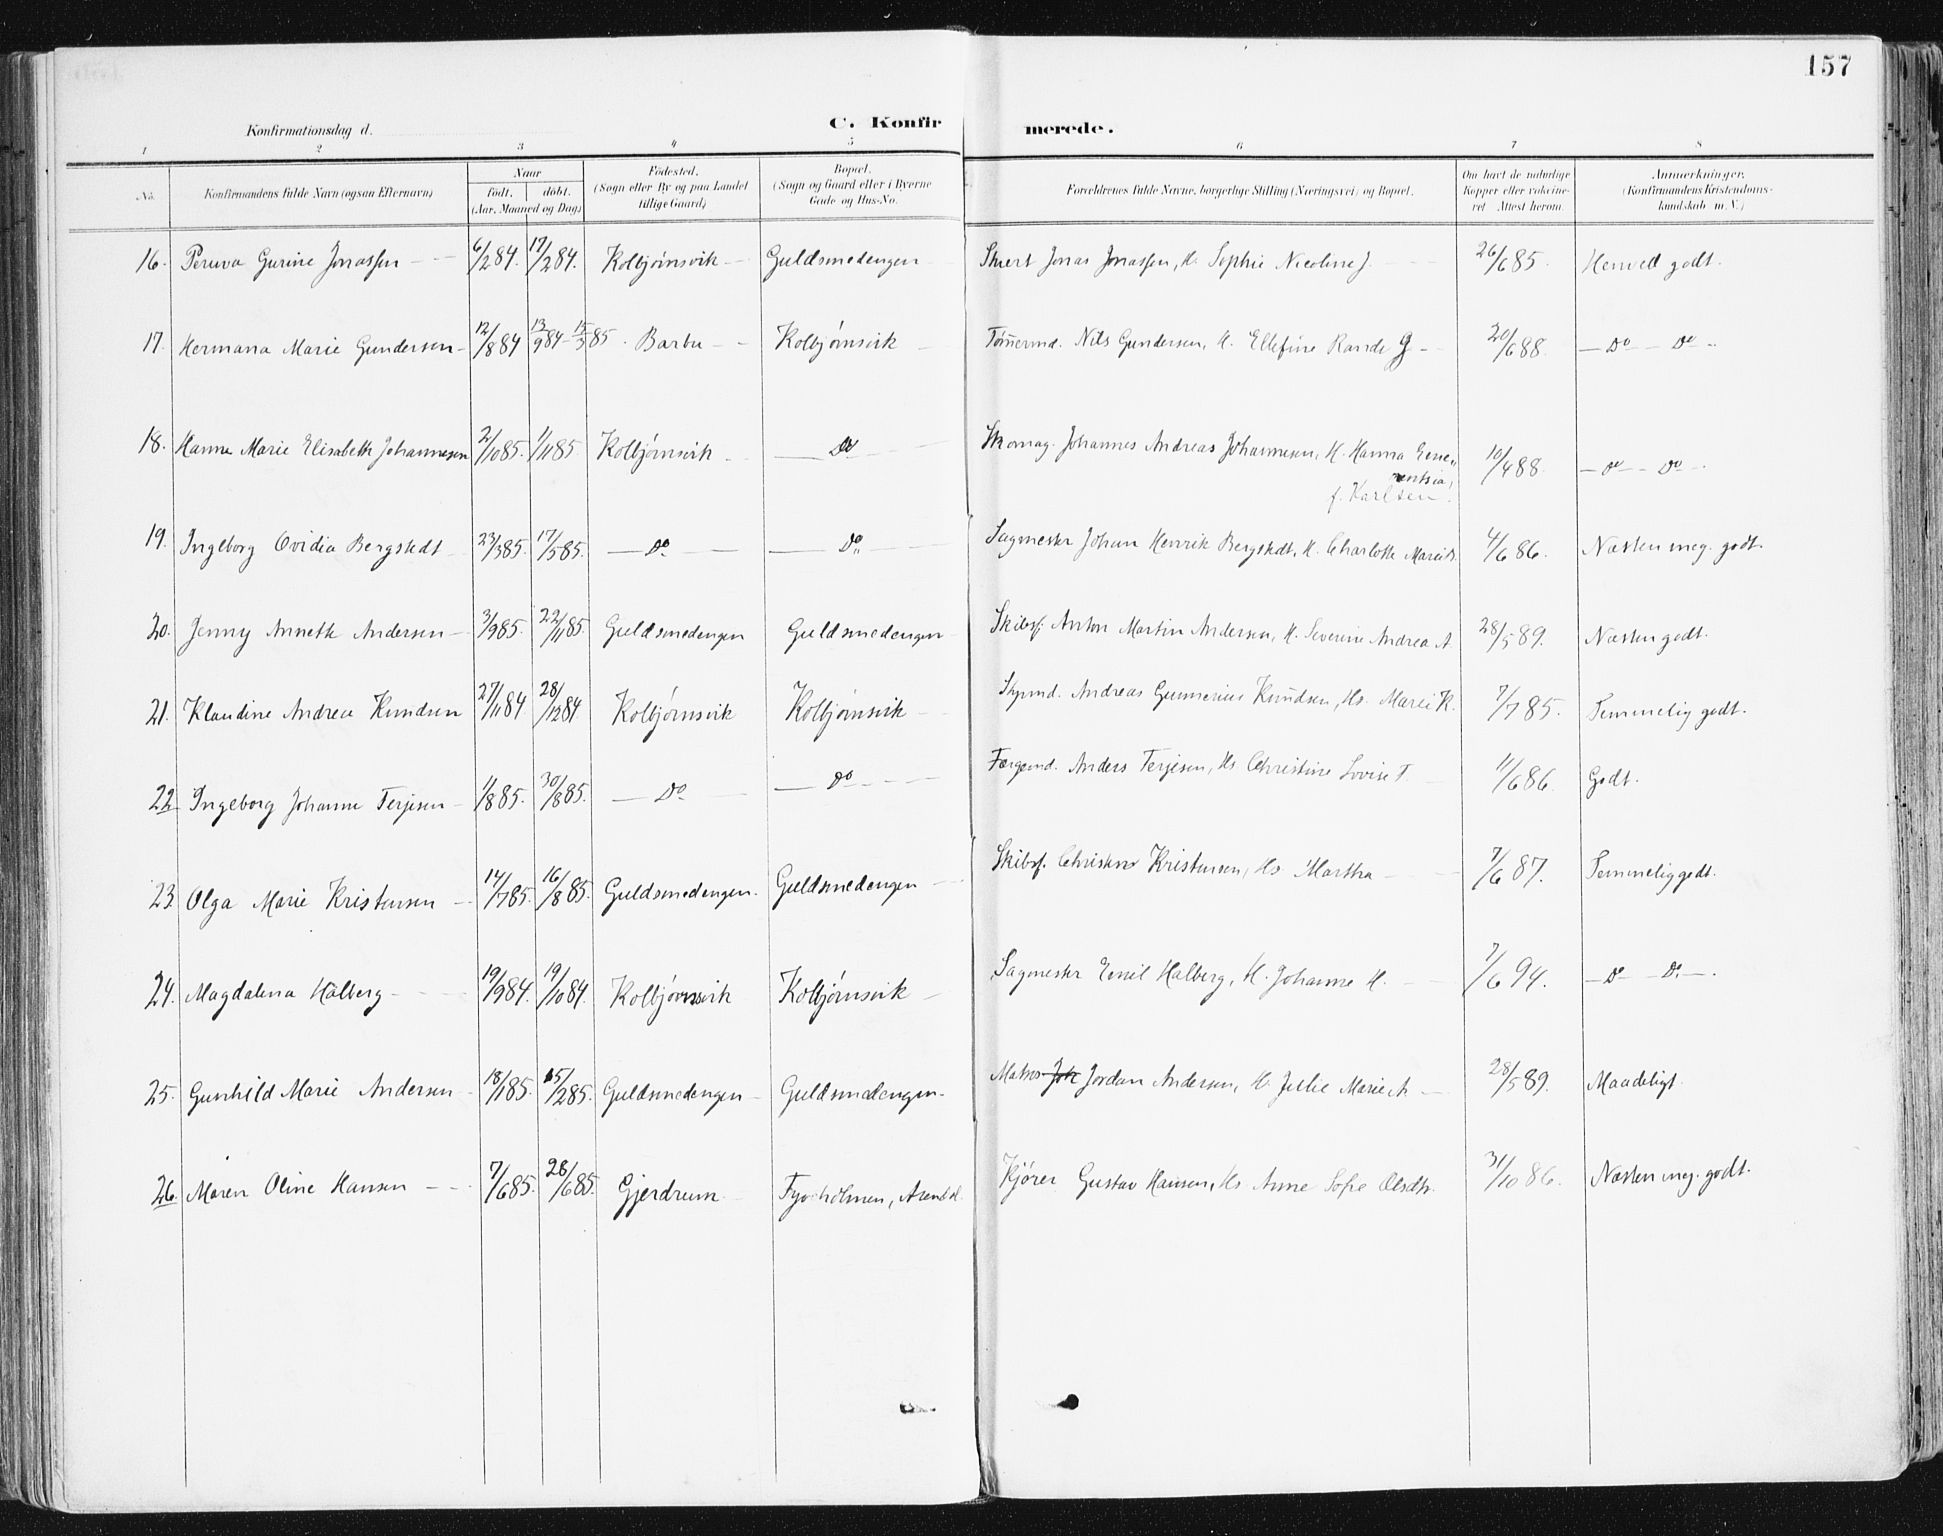 157
Konfirmationsdag d.
C. Konfirmerede.
1 2 3 4 5 6 7 8
No. Konfirmandens fulde Navn (ogsaa Efternavn) Naar födt. döbt. (Aar, Maaned og Dag) Födested. (Sogn eller By og paa Landet tillige Gaard) Bopæl. (Sogn og Gaard eller i Byerne Gade og Hus-No. Forældrenes fulde Navne, borgerlige Stilling (Næringsvei) og Bopæl. Om havt de naturlige Kopper eller vaksineret Attest herom. Anmærkninger. (Konfirmandens Kristendomskundskab m. V.)
16. Gurine Jonassen 6/2 84. 17/2 84. Kolbjørnsvik Guldsmedengen Jonas Jonassen, H. Sophie Nicoline J. 26/6 85. Henved godt.
17. Hermana Marie Gundersen 12/8 84 13/9 84 – 15/3 85. Barbu Kolbjørnsvik Tømermd. Nils Gundersen, H. Ellefine Rande G 20/6 88. Do Do
18. Hanna Marie Elisabeth Johannesen 2/10 85. 1/11 85. Kolbjørnsvik Do Skomag. Johannes Andreas Johannesen, H. Hanna Eme„
rentsia,
f. Karlsen. 10/4 88. Do Do
19. Ingeborg Ovidia Bergstedt 23/3 85. 17/5 85. Do Do Sagmester Johan Henrik Bergstedt, H. Charlotte Marie B. 4/6 86. Næsten meg. godt.
20. Jenny Annette Andersen 3/9 85. 22/11 85. Guldsmedengen Guldsmedengen Skibsf. Anton Martin Andersen, H. Severine Andrea A. 28/5 89. Næsten godt.
21. Klaudine Andrea Knudsen 27/11 84 28/12 84. Kolbjørnsvik Kolbjørnsvik Styrmd. Andreas Gunnerius Knudsen, Hs. Marei K. 7/7 85. Temmelig godt.
22. Ingeborg Johanne Terjesen 1/8 85. 30/8 85. Do Do Færgemd. Anders Terjesen, Hs Christine Lovise T 11/6 86. Godt.
23. Olga Marie Kristensen 14/7 85. 16/8 85. Guldsmedengen. Guldsmedengen Skibsf. Christen Kristensen, Hs. Martha 7/6 87. Temmelig godt.
24. Magdalena Halberg 19/9 84. 19/10 84. Kolbjørnsvik Kolbjørnsvik Sagmester Emil Halberg, H. Johanne H. 7/6 94. Do Do.
25. Gunhild Marie Andersen 18/1 85. 15/2 85. Guldsmedengen Guldsmedengen. Matros Joh Jordan Andersen, H. Jullie Marie A 28/5 89. Maadeligt.
26. Maren Oline Hansen 7/6 85. 28/6 85. Gjerdrum Tyvholmen, Arendal. Kjører Gustav Hansen, Hs Anne Sofie Olsdtr. 31/10 86. Næsten meg. godt.